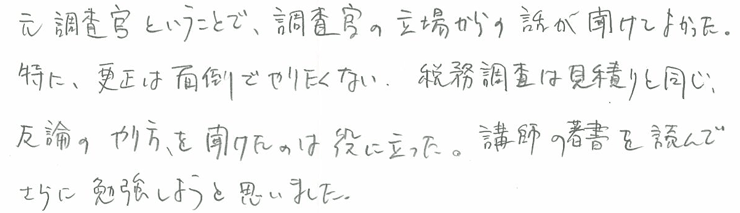 元調査官ということで、調査官の立場からの話が聞けてよかった。
特に、更正は面倒でやりたくない. 税務調査は見積りと同じ、
反論のやり方、を聞けたのは役に立った。講師の著書を読んで
さらに勉強しようと思いました。